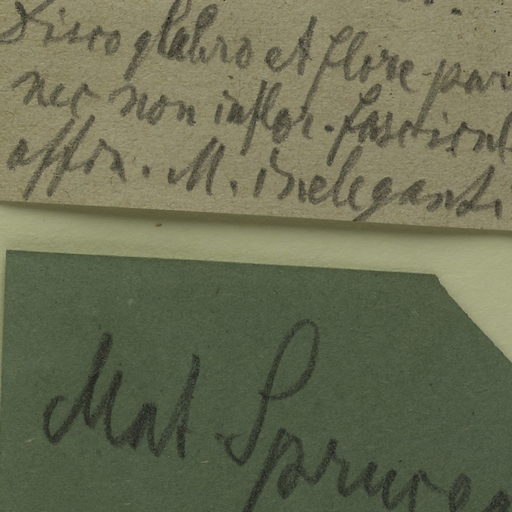 Disco glabro et flore par
nec non inflor. fascicul
affin. M. ineleganti
Mat Sprucea